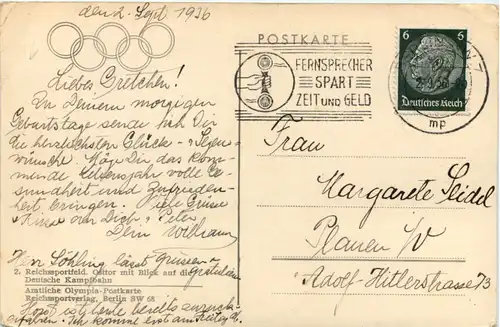 den 2. Sept 1936
Liebes Gretchen!
Zu Deinem morgigen
Geburtstage sende ich Dir
die herzlichsten Glück- u. Segen-
wünsche. Möge Dir das kom-
mende Lebensjahr volle Ge-
sundheit und Zufrieden-
heit bringen. Viele Grüsse
u. Küsse für Dich u. Peter
Dein
Herr Söhling lässt Grüssen u.
gratulieren
2. Reichssportfeld. Osttor mit Blick auf die
Deutsche Kampfbahn
Amtliche Olympia-Postkarte
Reichssportverlag, Berlin SW 68
Horst ist heute bereits zurück
gefahren. Ich komme erst am
POSTKARTE
FERNSPRECHER
SPART
ZEIT UND GELD
6 6
Deutsches Reich
mp
Frau
Margarete Seidel
Plauen i/V
Adolf-Hitlerstrasse 73